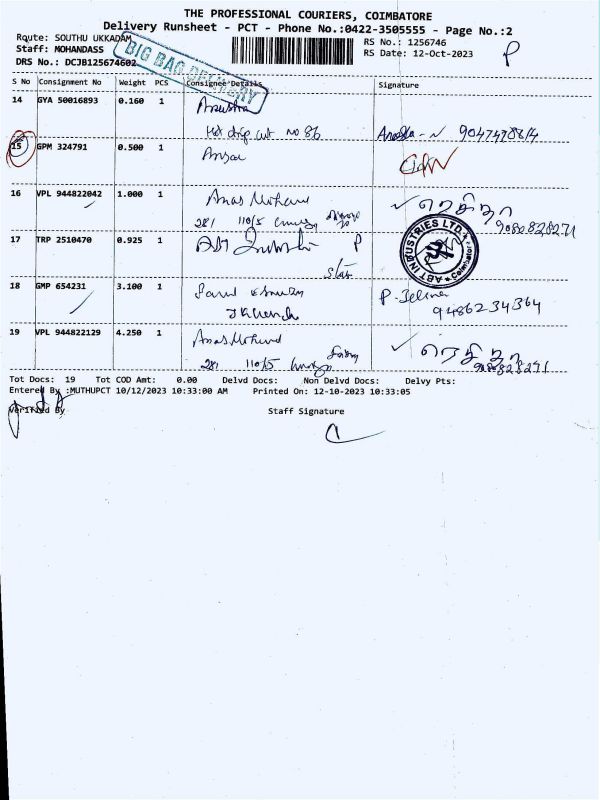 THE PROFESSIONAL COURIERS, COIMBATORE
Delivery Runsheet - PCT - Phone No.:0422-3505555 - Page No.:2
Route: SOUTHU UKKADAM RS No.: 1256746 P
Staff: MOHANDASS RS Date: 12-Oct-2023
DRS No.: DCJB125674602
BIG BAG DELIVERY
S No Consignment No Weight PCS Consignee Details Signature
14 GYA 50016893 0.160 1
Hot drip cut no 86
15 GPM 324791 0.500 1 Ansar
16 VPL 944822042 1.000 1 Anas Mohamd
281 110/5 9080828271
17 TRP 2510470 0.925 1 ABT P
ABT INDUSTRIES LTD. Coimbatore
18 GMP 654231 3.100 1 P. Jelina
9486234364
19 VPL 944822129 4.250 1 Anas Mohamd
281 110/5 9080828271
Tot Docs: 19 Tot COD Amt: 0.00 Delvd Docs: Non Delvd Docs: Delvy Pts:
Entered By :MUTHUPCT 10/12/2023 10:33:00 AM Printed On: 12-10-2023 10:33:05
Verified By Staff Signature